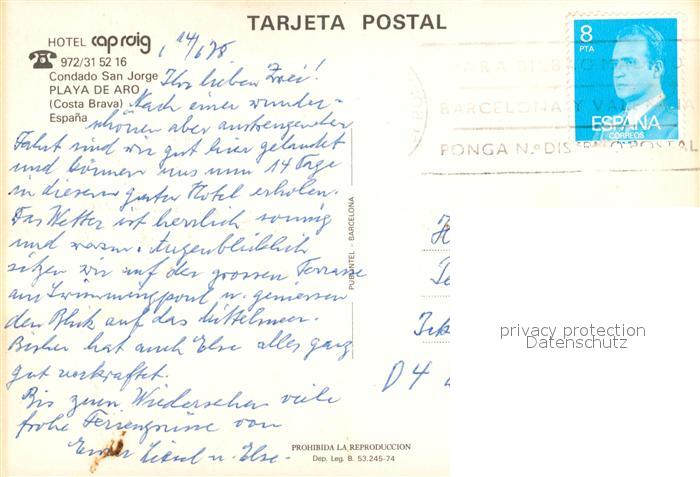 TARJETA POSTAL
HOTEL cap roig
972/31 52 16
Condado San Jorge
PLAYA DE ARO
(Costa Brava)
España
14/6 78
Ihr lieben Zwei!
Nach einer wunder-
schönen aber anstrengenden
Fahrt sind wir gut hier gelandet
und können uns nun 14 Tage
in diesem guten Hotel erholen.
Das Wetter ist herrlich sonnig
und warm. Augenblicklich
sitzen wir auf der grossen Terrasse
am Swimmingpool u. geniessen
den Blick auf das Mittelmeer.
Bisher hat auch Else alles ganz
gut verkraftet.
Bis zum Wiedersehen viele
frohe Feriengrüsse von
Eurer Liesel u. Else.
PUBLINTEL - BARCELONA
PROHIBIDA LA REPRODUCCION
Dep. Leg. B. 53.245-74
8
PTA
ESPAÑA
CORREOS
PARA BILBAO M
BARCELONA Y VALENCIA
PONGA N.º DISTRITO POSTAL
D4
privacy protection
Datenschutz